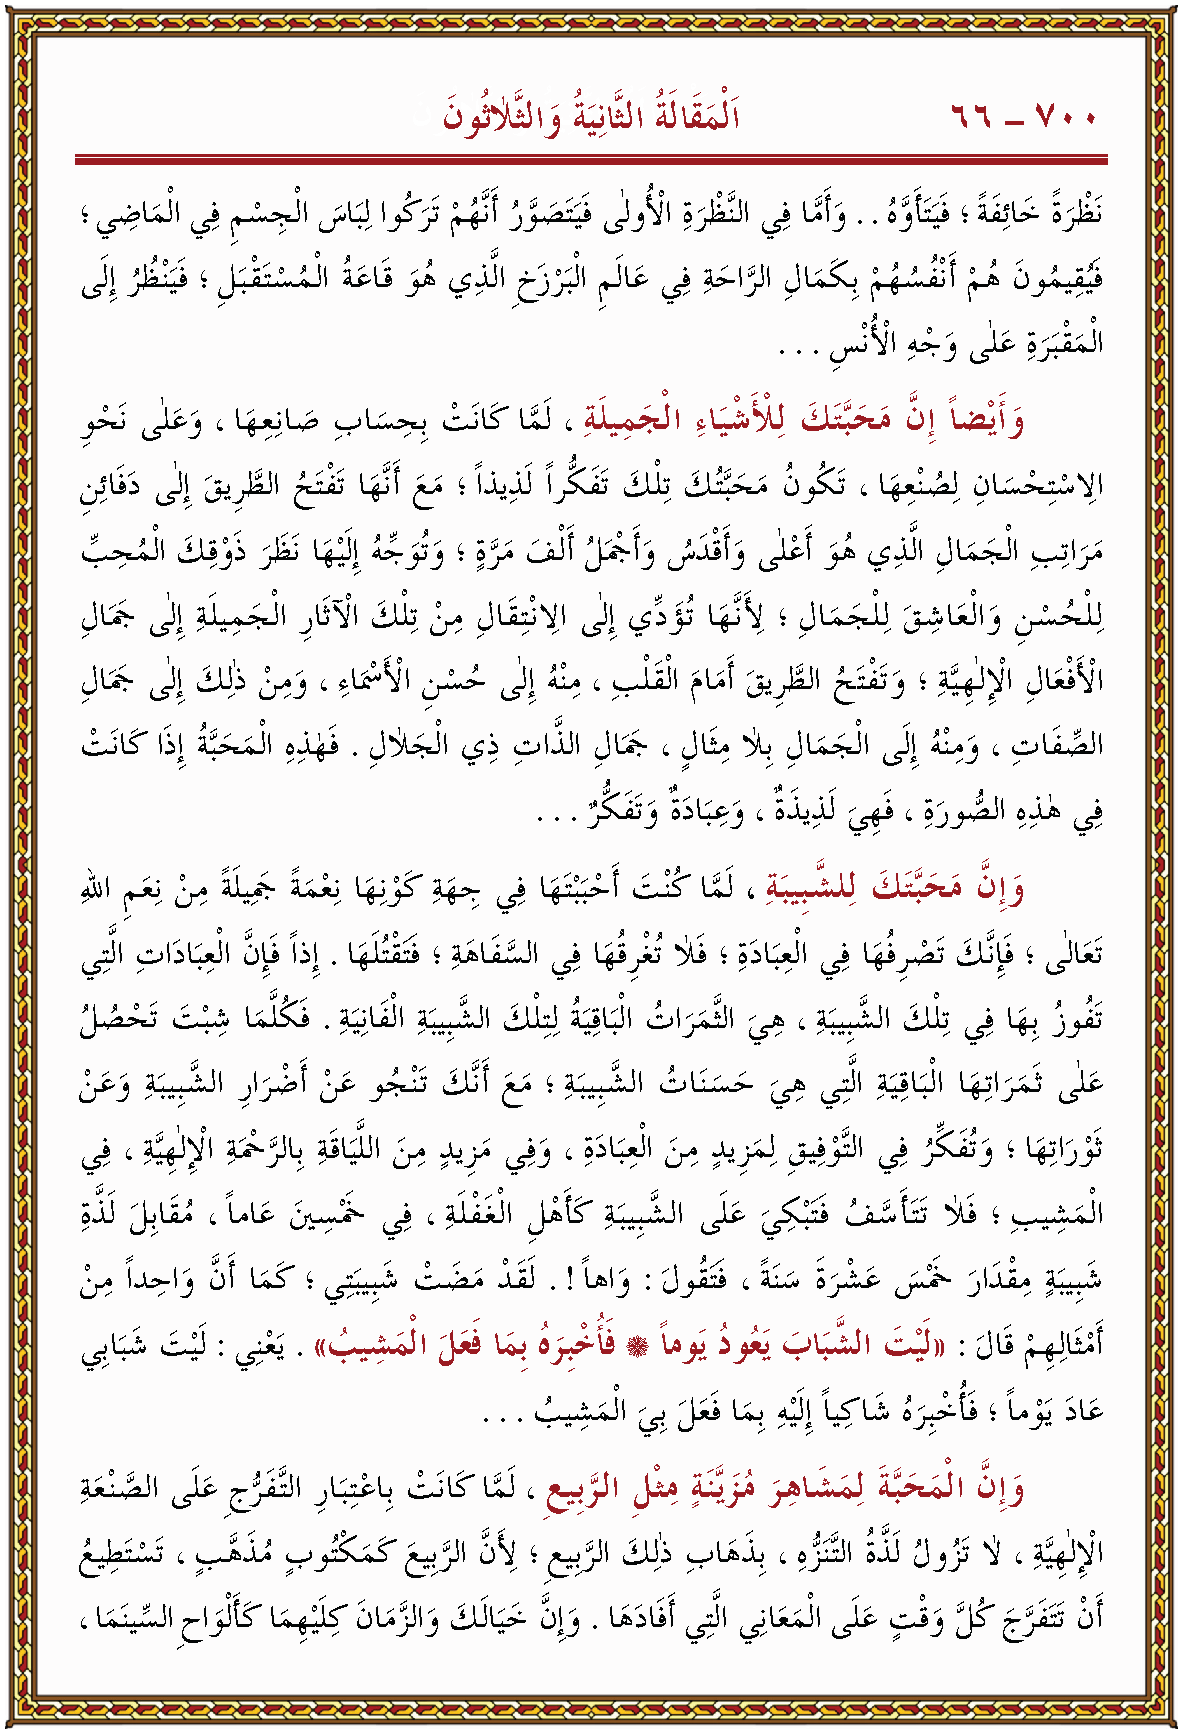 ٧٠٠ – ٦٦ اَلْمَقَالَةُ الثَّانِيَةُ وَالثَّلاٰثُونَ
نَظْرَةً خَائِفَةً ؛ فَيَتَأَوَّهُ . . وَأَمَّا فِي النَّظْرَةِ الْأُولٰى فَيَتَصَوَّرُ أَنَّهُمْ تَرَكُوا لِبَاسَ الْجِسْمِ فِي الْمَاضِي ؛
فَيُقِيمُونَ هُمْ أَنْفُسُهُمْ بِكَمَالِ الرَّاحَةِ فِي عَالَمِ الْبَرْزَخِ الَّذِي هُوَ قَاعَةُ الْمُسْتَقْبَلِ ؛ فَيَنْظُرُ إِلَى
الْمَقْبَرَةِ عَلٰى وَجْهِ الْأُنْسِ . . .
وَأَيْضاً إِنَّ مَحَبَّتَكَ لِلْأَشْيَاءِ الْجَمِيلَةِ ، لَمَّا كَانَتْ بِحِسَابِ صَانِعِهَا ، وَعَلٰى نَحْوِ
الِاسْتِحْسَانِ لِصُنْعِهَا ، تَكُونُ مَحَبَّتُكَ تِلْكَ تَفَكُّراً لَذِيذاً ؛ مَعَ أَنَّهَا تَفْتَحُ الطَّرِيقَ إِلٰى دَفَائِنِ
مَرَاتِبِ الْجَمَالِ الَّذِي هُوَ أَعْلٰى وَأَقْدَسُ وَأَجْمَلُ أَلْفَ مَرَّةٍ ؛ وَتُوَجِّهُ إِلَيْهَا نَظَرَ ذَوْقِكَ الْمُحِبِّ
لِلْحُسْنِ وَالْعَاشِقَ لِلْجَمَالِ ؛ لِأَنَّهَا تُؤَدِّي إِلٰى الِانْتِقَالِ مِنْ تِلْكَ الْآثَارِ الْجَمِيلَةِ إِلٰى جَمَالِ
الْأَفْعَالِ الْإِلٰهِيَّةِ ؛ وَتَفْتَحُ الطَّرِيقَ أَمَامَ الْقَلْبِ ، مِنْهُ إِلٰى حُسْنِ الْأَسْمَاءِ ، وَمِنْ ذٰلِكَ إِلٰى جَمَالِ
الصِّفَاتِ ، وَمِنْهُ إِلَى الْجَمَالِ بِلاٰ مِثَالٍ ، جَمَالِ الذَّاتِ ذِي الْجَلاٰلِ . فَهٰذِهِ الْمَحَبَّةُ إِذَا كَانَتْ
فِي هٰذِهِ الصُّورَةِ ، فَهِيَ لَذِيذَةٌ ، وَعِبَادَةٌ وَتَفَكُّرٌ . . .
وَإِنَّ مَحَبَّتَكَ لِلشَّبِيبَةِ ، لَمَّا كُنْتَ أَحْبَبْتَهَا فِي جِهَةِ كَوْنِهَا نِعْمَةً جَمِيلَةً مِنْ نِعَمِ اللهِ
تَعَالٰى ؛ فَإِنَّكَ تَصْرِفُهَا فِي الْعِبَادَةِ ؛ فَلاٰ تُغْرِقُهَا فِي السَّفَاهَةِ ؛ فَتَقْتُلَهَا . إِذاً فَإِنَّ الْعِبَادَاتِ الَّتِي
تَفُوزُ بِهَا فِي تِلْكَ الشَّبِيبَةِ ، هِيَ الثَّمَرَاتُ الْبَاقِيَةُ لِتِلْكَ الشَّبِيبَةِ الْفَانِيَةِ . فَكُلَّمَا شِبْتَ تَحْصُلُ
عَلٰى ثَمَرَاتِهَا الْبَاقِيَةِ الَّتِي هِيَ حَسَنَاتُ الشَّبِيبَةِ ؛ مَعَ أَنَّكَ تَنْجُو عَنْ أَضْرَارِ الشَّبِيبَةِ وَعَنْ
ثَوْرَاتِهَا ؛ وَتُفَكِّرُ فِي التَّوْفِيقِ لِمَزِيدٍ مِنَ الْعِبَادَةِ ، وَفِي مَزِيدٍ مِنَ اللَّيَاقَةِ بِالرَّحْمَةِ الْإِلٰهِيَّةِ ، فِي
الْمَشِيبِ ؛ فَلاٰ تَتَأَسَّفُ فَتَبْكِيَ عَلَى الشَّبِيبَةِ كَأَهْلِ الْغَفْلَةِ ، فِي خَمْسِينَ عَاماً ، مُقَابِلَ لَذَّةِ
شَبِيبَةٍ مِقْدَارَ خَمْسَ عَشْرَةَ سَنَةً ، فَتَقُولَ : وَاهاً ! . لَقَدْ مَضَتْ شَبِيبَتِي ؛ كَمَا أَنَّ وَاحِداً مِنْ
أَمْثَالِهِمْ قَالَ : «لَيْتَ الشَّبَابَ يَعُودُ يَوماً ۞ فَأُخْبِرَهُ بِمَا فَعَلَ الْمَشِيبُ» . يَعْنِي : لَيْتَ شَبَابِي
عَادَ يَوْماً ؛ فَأُخْبِرَهُ شَاكِياً إِلَيْهِ بِمَا فَعَلَ بِيَ الْمَشِيبُ . . .
وَإِنَّ الْمَحَبَّةَ لِمَشَاهِرَ مُزَيَّنَةٍ مِثْلِ الرَّبِيعِ ، لَمَّا كَانَتْ بِاعْتِبَارِ التَّفَرُّجِ عَلَى الصَّنْعَةِ
الْإِلٰهِيَّةِ ، لاٰ تَزُولُ لَذَّةُ التَّنَزُّهِ ، بِذَهَابِ ذٰلِكَ الرَّبِيعِ ؛ لِأَنَّ الرَّبِيعَ كَمَكْتُوبٍ مُذَهَّبٍ ، تَسْتَطِيعُ
أَنْ تَتَفَرَّجَ كُلَّ وَقْتٍ عَلَى الْمَعَانِي الَّتِي أَفَادَهَا . وَإِنَّ خَيَالَكَ وَالزَّمَانَ كِلَيْهِمَا كَأَلْوَاحِ السِّينَمَا ،